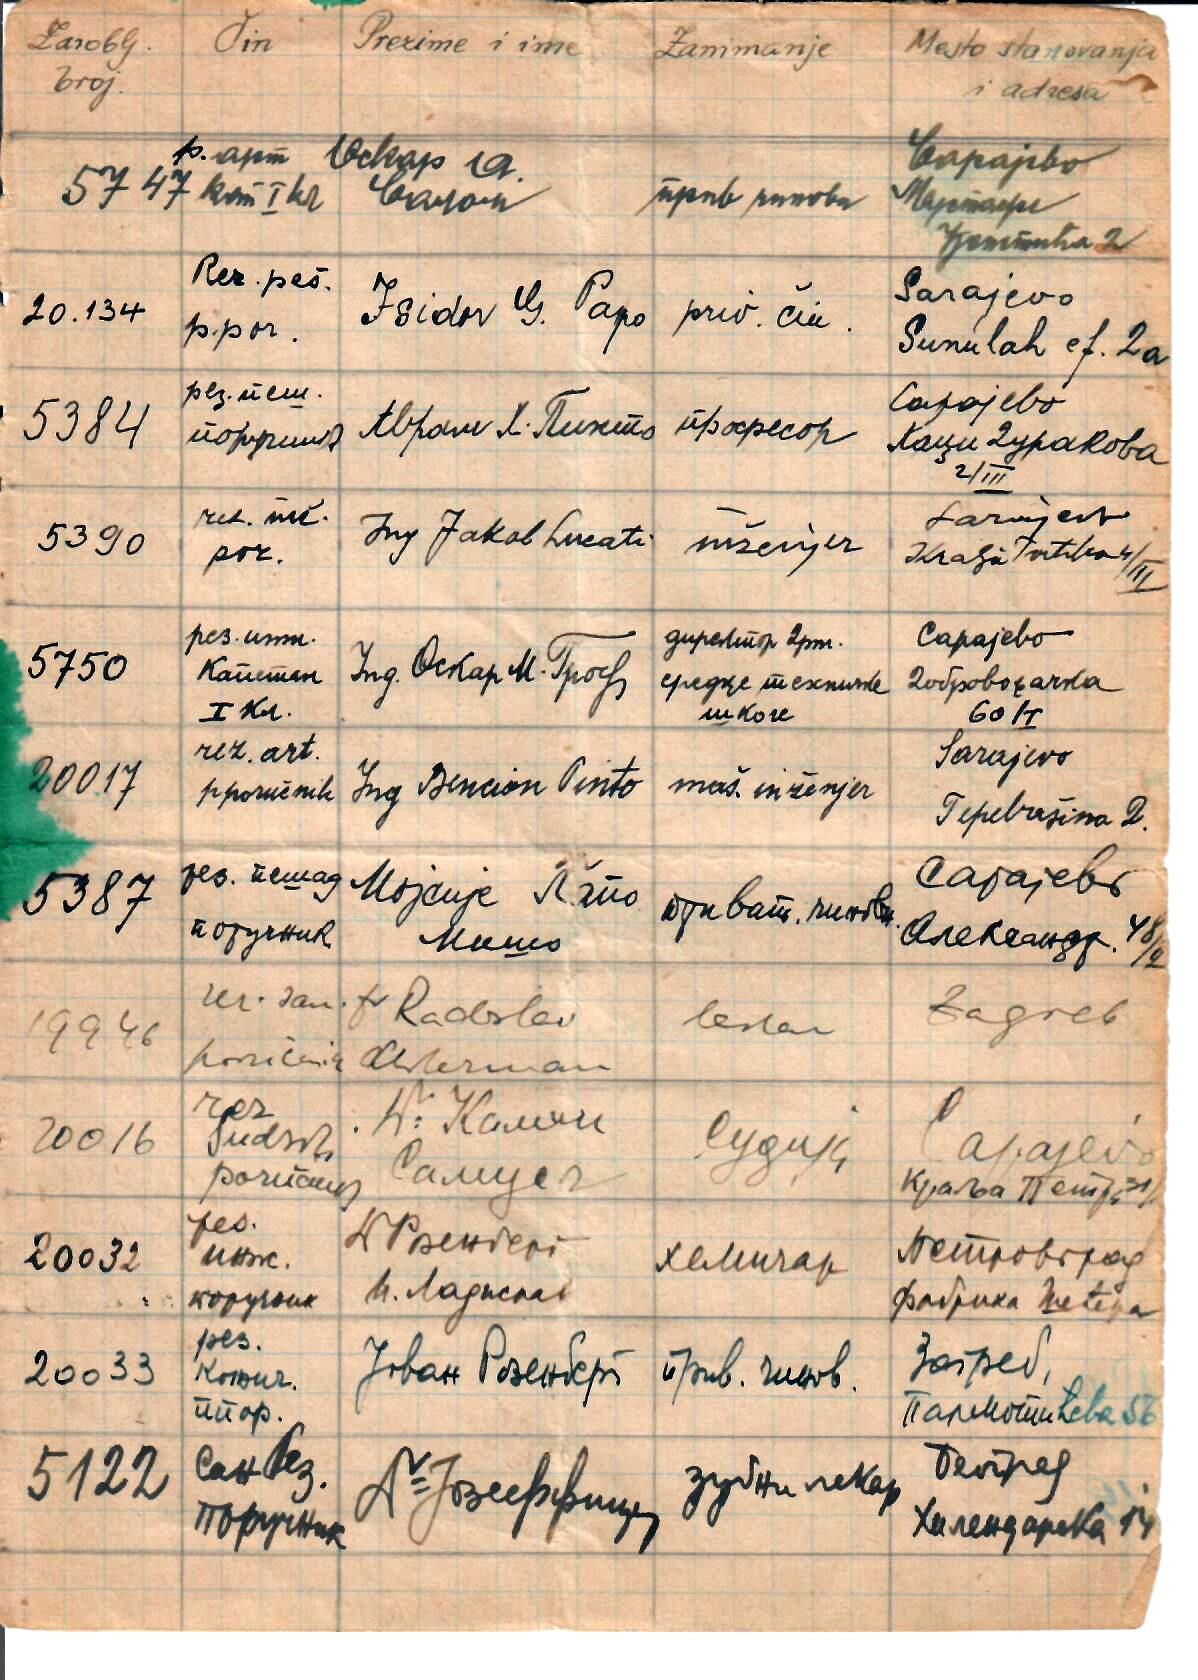 Zaroblj. broj. Čin Prezime i ime Zanimanje Mesto stanovanja i adresa
5747 р. арт кап I кл Оскар Салом прив чиновн Сарајево 2
20.134 Rez. peš. p.por. Isidor G. Papo priv. čin. Sarajevo Sunulah ef. 2a
5384 рез. пеш. поручник Аврам Х. Пинто професор Сарајево Хаџи Дуракова 2/III
5390 rez. inž. por. Ing Jakob Lucati inženjer Sarajevo Kralja Tvrtka 4/III
5750 рез. инт. Капетан I кл. Ing. Оскар М. Гроф директор држ. средње техничке школе Сарајево Добровољачка 60/I
20017 rez. art. pporučnik Ing Bencion Pinto maš. inženjer Sarajevo Tepebašina 2.
5387 рез. пешад поручник Мојсије Мишо приват. чиновн. Сарајево Александр. 48/2
19946 rez. san. poručnik dr Radoslav lekar Zagreb
20016 rez sudski poručnik Dr. Камхи Самуел Судија Сарајево Краља Петра
20032 рез. инж. поручник Dr Розенберг И. Ладислав хемичар Петровград фабрика
20033 рез. ппор. Јован Розенберг прив. чинов. Загреб, Палмотићева 56
5122 Сан Рез. Поручник Dr зубни лекар Београд Хилендарска 14